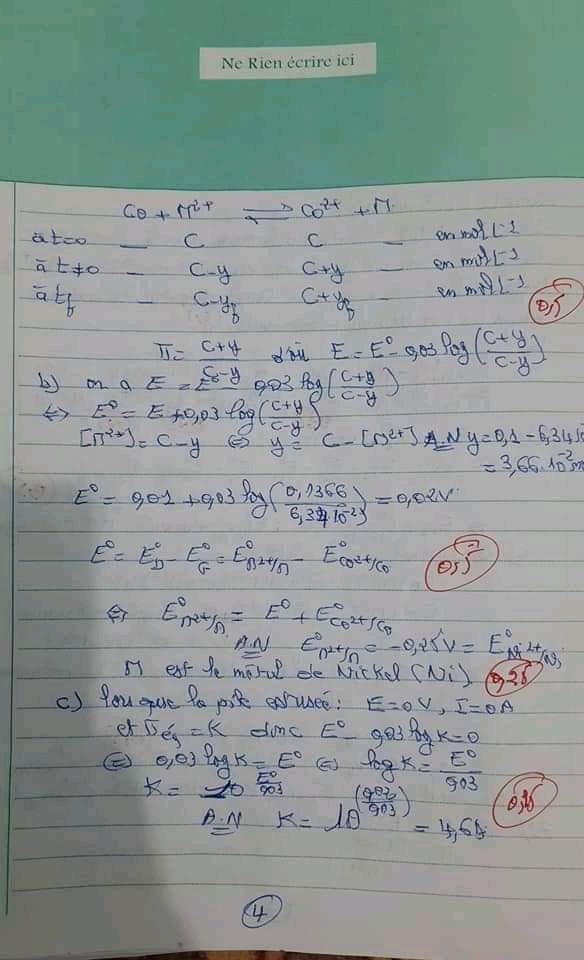 Ne Rien écrire ici
Co + M²⁺ ⇌ Co²⁺ + M
à t=0 — C C — en mol L⁻¹
à t≠0 — C-y C+y — en mol L⁻¹
à tf — C-yf C+yf — en mol L⁻¹
0,5
Π = (C+y)/(C-y) d'où E = E° - 0,03 log((C+y)/(C-y))
b) on a E = E° 0,03 log((C+y)/(C-y))
⇔ E° = E + 0,03 log((C+y)/(C-y))
[M²⁺] = C-y ⇔ y = C - [M²⁺] A.N y = 0,1 - 6,34 10
= 3,66.10⁻² m
E° = 0,01 + 0,03 log(0,1366/6,34 10⁻²) = 0,02V
E° = E°D - E°G = E°M²⁺/M - E°Co²⁺/Co
0,5
⇔ E°M²⁺/M = E° + E°Co²⁺/Co
A.N E°M²⁺/M = -0,25V = E°Ni²⁺/Ni
M est le métal de Nickel (Ni)
0,25
c) lorsque la pile est usée: E=0V, I=0A
et Πéq = K donc E° - 0,03 log K = 0
⇔ 0,03 log K = E° ⇔ log K = E°/0,03
K = 10^(E°/0,03)
A.N K = 10^(0,02/0,03) = 4,64
4